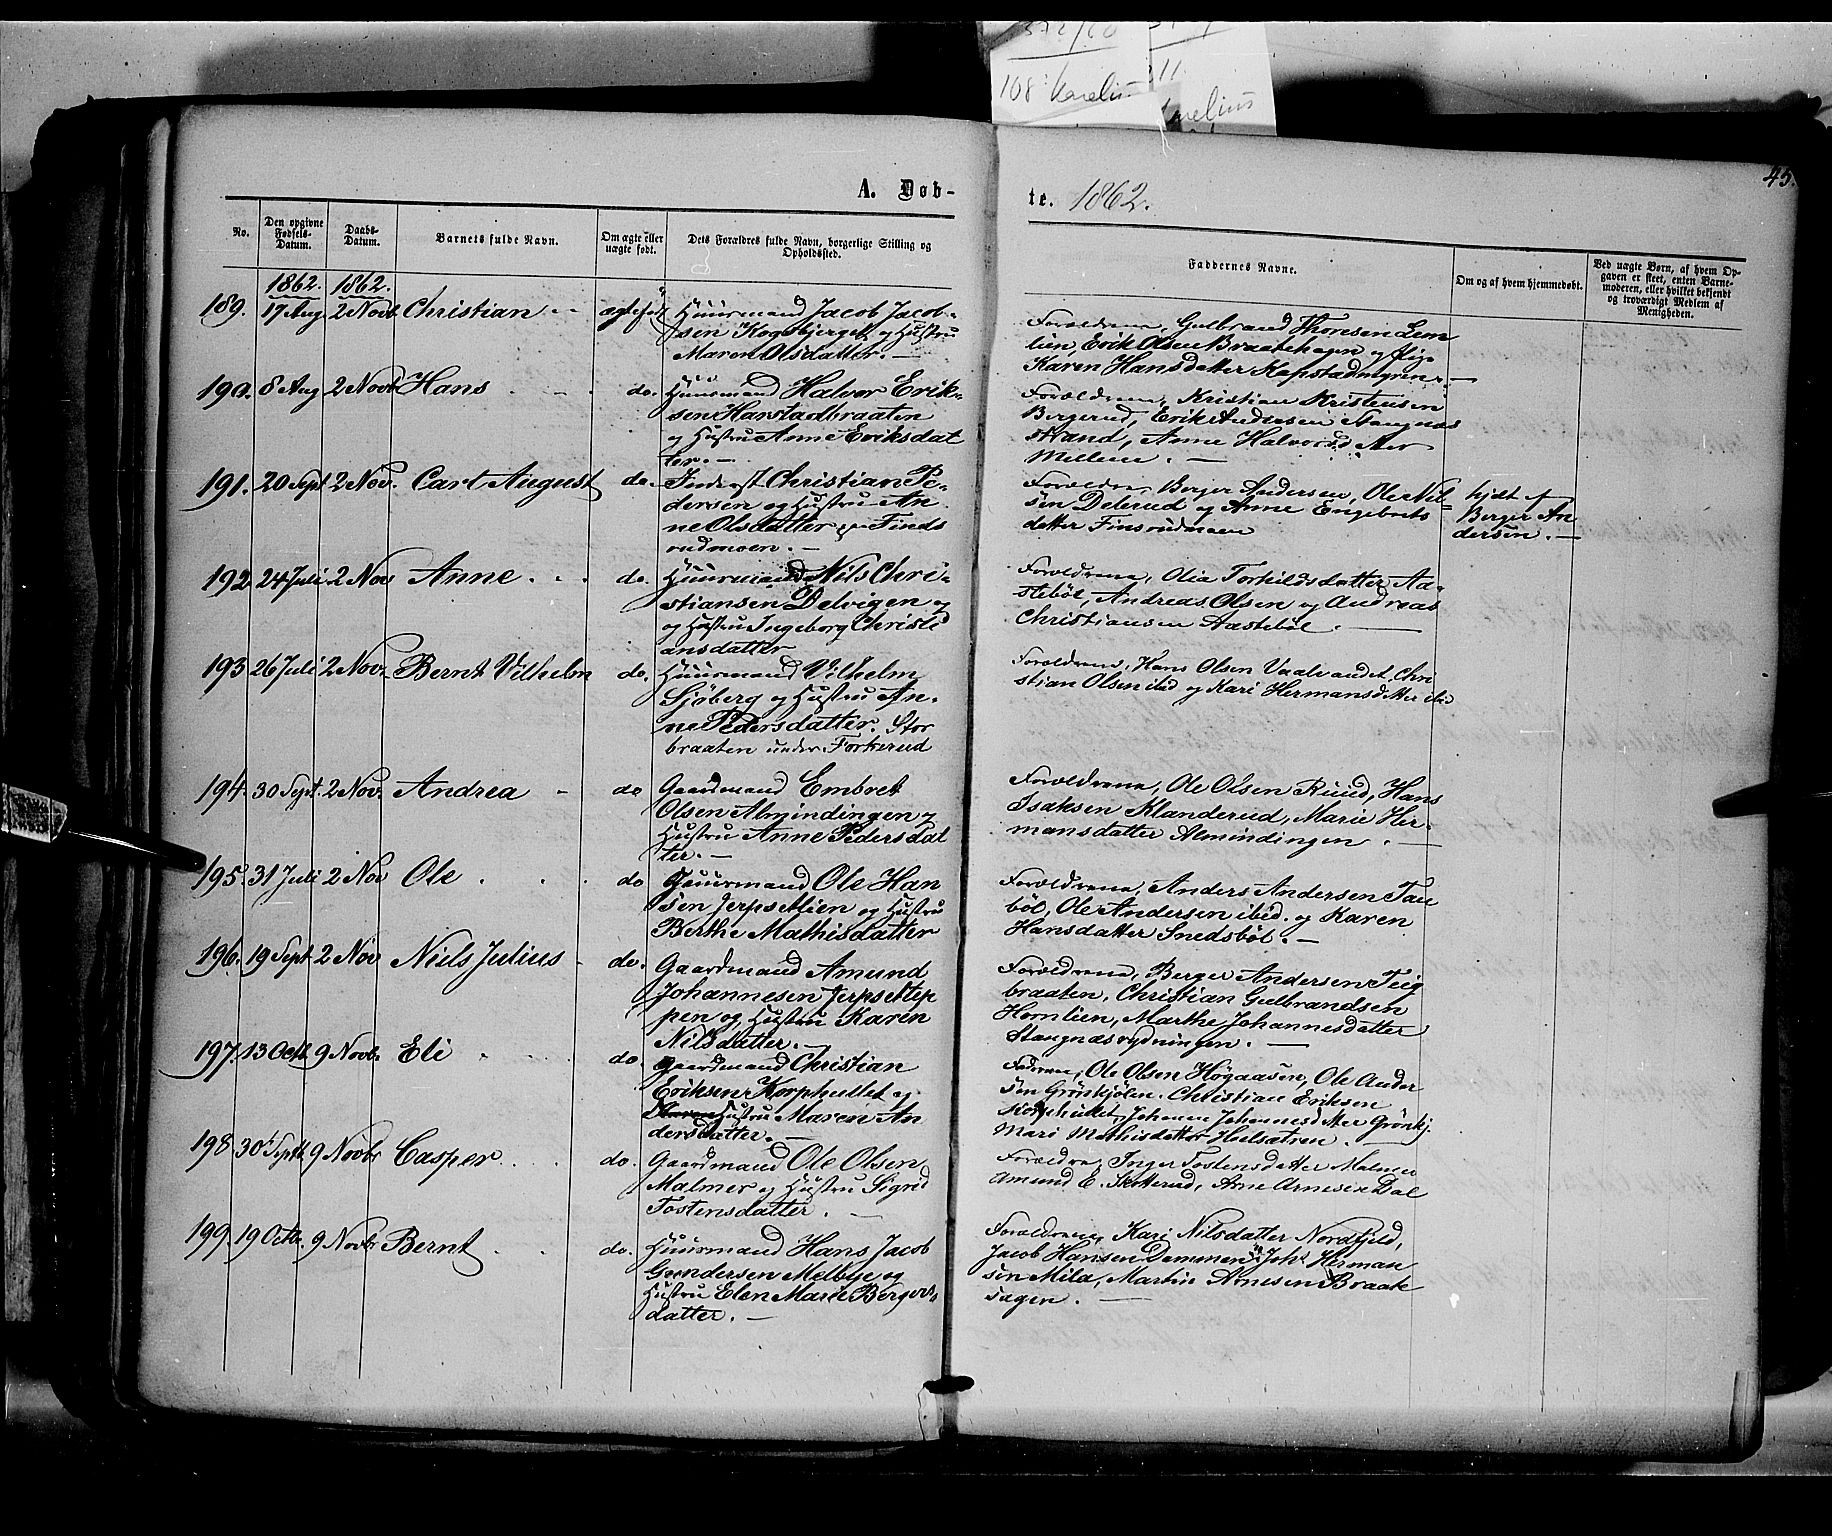 108 Karelius
11.
A. Døb-
te. 1862.
45.
No.
Den opgivne
Fødsels-
Datum.
Daabs-
Datum.
Barnets fulde Navn.
Om ægte eller
uægte født.
Dets Forældres fulde Navn, borgerlige Stilling og
Opholdssted.
Faddernes Navne.
Om og af hvem hjemmedøbt.
Ved uægte Børn, af hvem Op-
gaven er skeet, enten Barne-
moderen, eller hvilket bekjendt
og troværdigt Medlem af
Menigheden.
1862. 1862.
189. 17 Aug 2 Novb Christian ægtefød
Huusmand Jacob Jacob-
sen Kogsbjerget og Hustru
Maren Olsdatter. —
Forældrene, Gulbrand Thoresen Lem
lien, Erik Olsen Braatehagen og Pige
Karen Hansdatter Kapstadmyren. —
190. 8 Aug 2 Novbr Hans do.
Huusmand Halvor Erik-
sen Harstadbraaten
og Hustru Anne Eriksdat
ter. —
Forældrene, Kristian Kristensen
Bergerud, Erik Andresen Stangnæs
strand, Anne Halvorsd. Aer
Mellem. —
191. 20 Sept 2 Nov. Carl August do.
Inderst Christian Pe-
dersen og Hustru An
ne Olsdatter Finds
rudmoen. —
Forældrene, Berger Andersen, Ole Nil
sen Delerud og Anne Engebrets
datter Finsrudmoen
hjdt af
Berger An
dersen. —
192 24 Juli 2 Nov Anne do.
Huusmand Nils Chri-
stiansen Delvigen og
og Hustru Ingeborg Christi
ansdatter
Forældrene, Olia Torkildsdatter Aa-
stebøl, Andreas Olsen og Andreas
Christiansen Aastebøl. —
193 26 Juli 2 Novr. Bernt Vilhelm do.
Huusmand Vilhelm
Sjøberg og Hustru An-
ne Pedersdatter. Stor
braaten under Forkerud
Forældrene, Hans Olsen Vaalvandet, Chri
stian Olsen ibid og Kari Hermansdatter ibid
194. 30 Sept. 2 Nov. Andrea do
Gaardmand Embret
Olsen Almindingen og
Hustru Anne Pedersdat
ter. —
Forældrene, Ole Olsen Ruud, Hans
Isaksen Klanderud, Marie Her-
mansdatter Almindingen. —
195. 31 Juli 2 Nov Ole do
Huusmand Ole Han
sen Jerpsetlien og Hustru
Berthe Mathisdatter
Forældrene, Anders Andersen Tau
bøl, Ole Andersen ibid. og Karen
Hansdatter Snedsbøl. —
196. 19 Sept 2 Nov Niels Julius do.
Gaardmand Amund
Johannesen Jerpsettep
pen og Hustru Karen
Nilsdatter. —
Forældrene, Berger Andersen Teig
braaten, Christian Gulbrandsen
Hornlien, Marthe Johannesdatter
Stangnæsrydningen. —
197. 13 Octb 9 Novb. Eli do
Gaardmand Christian
Eriksen Korphullet og
Hustru Maren An
dersdatter. —
Fadrene, Ole Olsen Høgaasen, Ole Ander
sen Grønkjølen. Christian Eriksen
Korphullet, Johanne Johannesdatter Grønkj.
Mari Mathisdatter Hulsætren. —
198 30 Septb 9 Novbr Casper do.
Gaardmand Ole Olsen
Malmer og Hustru Sigrid
Tostensdatter. —
Forældre, Inger Tostensdatter Malmer
Amund E. Skotterud, Arne Arnesen Dal
199. 19 Octbr. 9 Novbr Bernt do.
Huusmand Hans Jacob
Gundersen Melbye og
Hustru Elen Marie Bergers-
datter. —
Forældrene, Kari Nilsdatter Nordfjeld,
Jacob Hansen Dammen, Joh. Herman
sen Mila, Martin Arnesen Braate
sagen. —